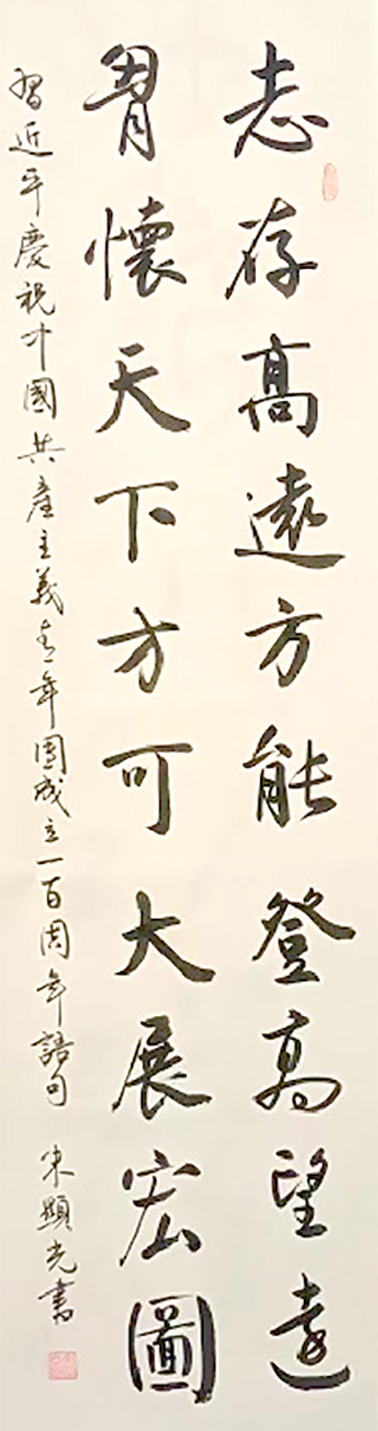 志存高遠方能登高望遠
胷懷天下方可大展宏圖
習近平慶祝中國共產主義青年團成立一百周年語句
朱顯光書